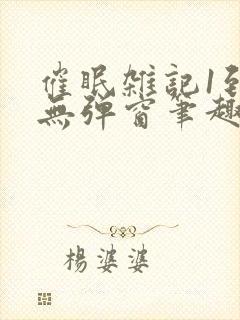 催眠雑記1到
無彈窗筆趣
楊婆婆